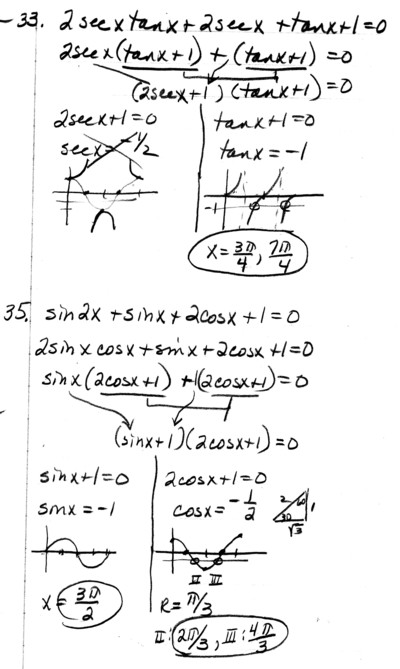 33. 2secxtanx+2secx+tanx+1=0
2secx(tanx+1)+(tanx+1)=0
(2secx+1)(tanx+1)=0
2secx+1=0
secx=-1/2
tanx+1=0
tanx=-1
-1
x=3π/4, 7π/4
35. sin2x+sinx+2cosx+1=0
2sinxcosx+sinx+2cosx+1=0
sinx(2cosx+1)+1(2cosx+1)=0
(sinx+1)(2cosx+1)=0
sinx+1=0
sinx=-1
x=3π/2
2cosx+1=0
cosx=-1/2
2 60 1
30
√3
II III
R=π/3
II: 2π/3, III: 4π/3